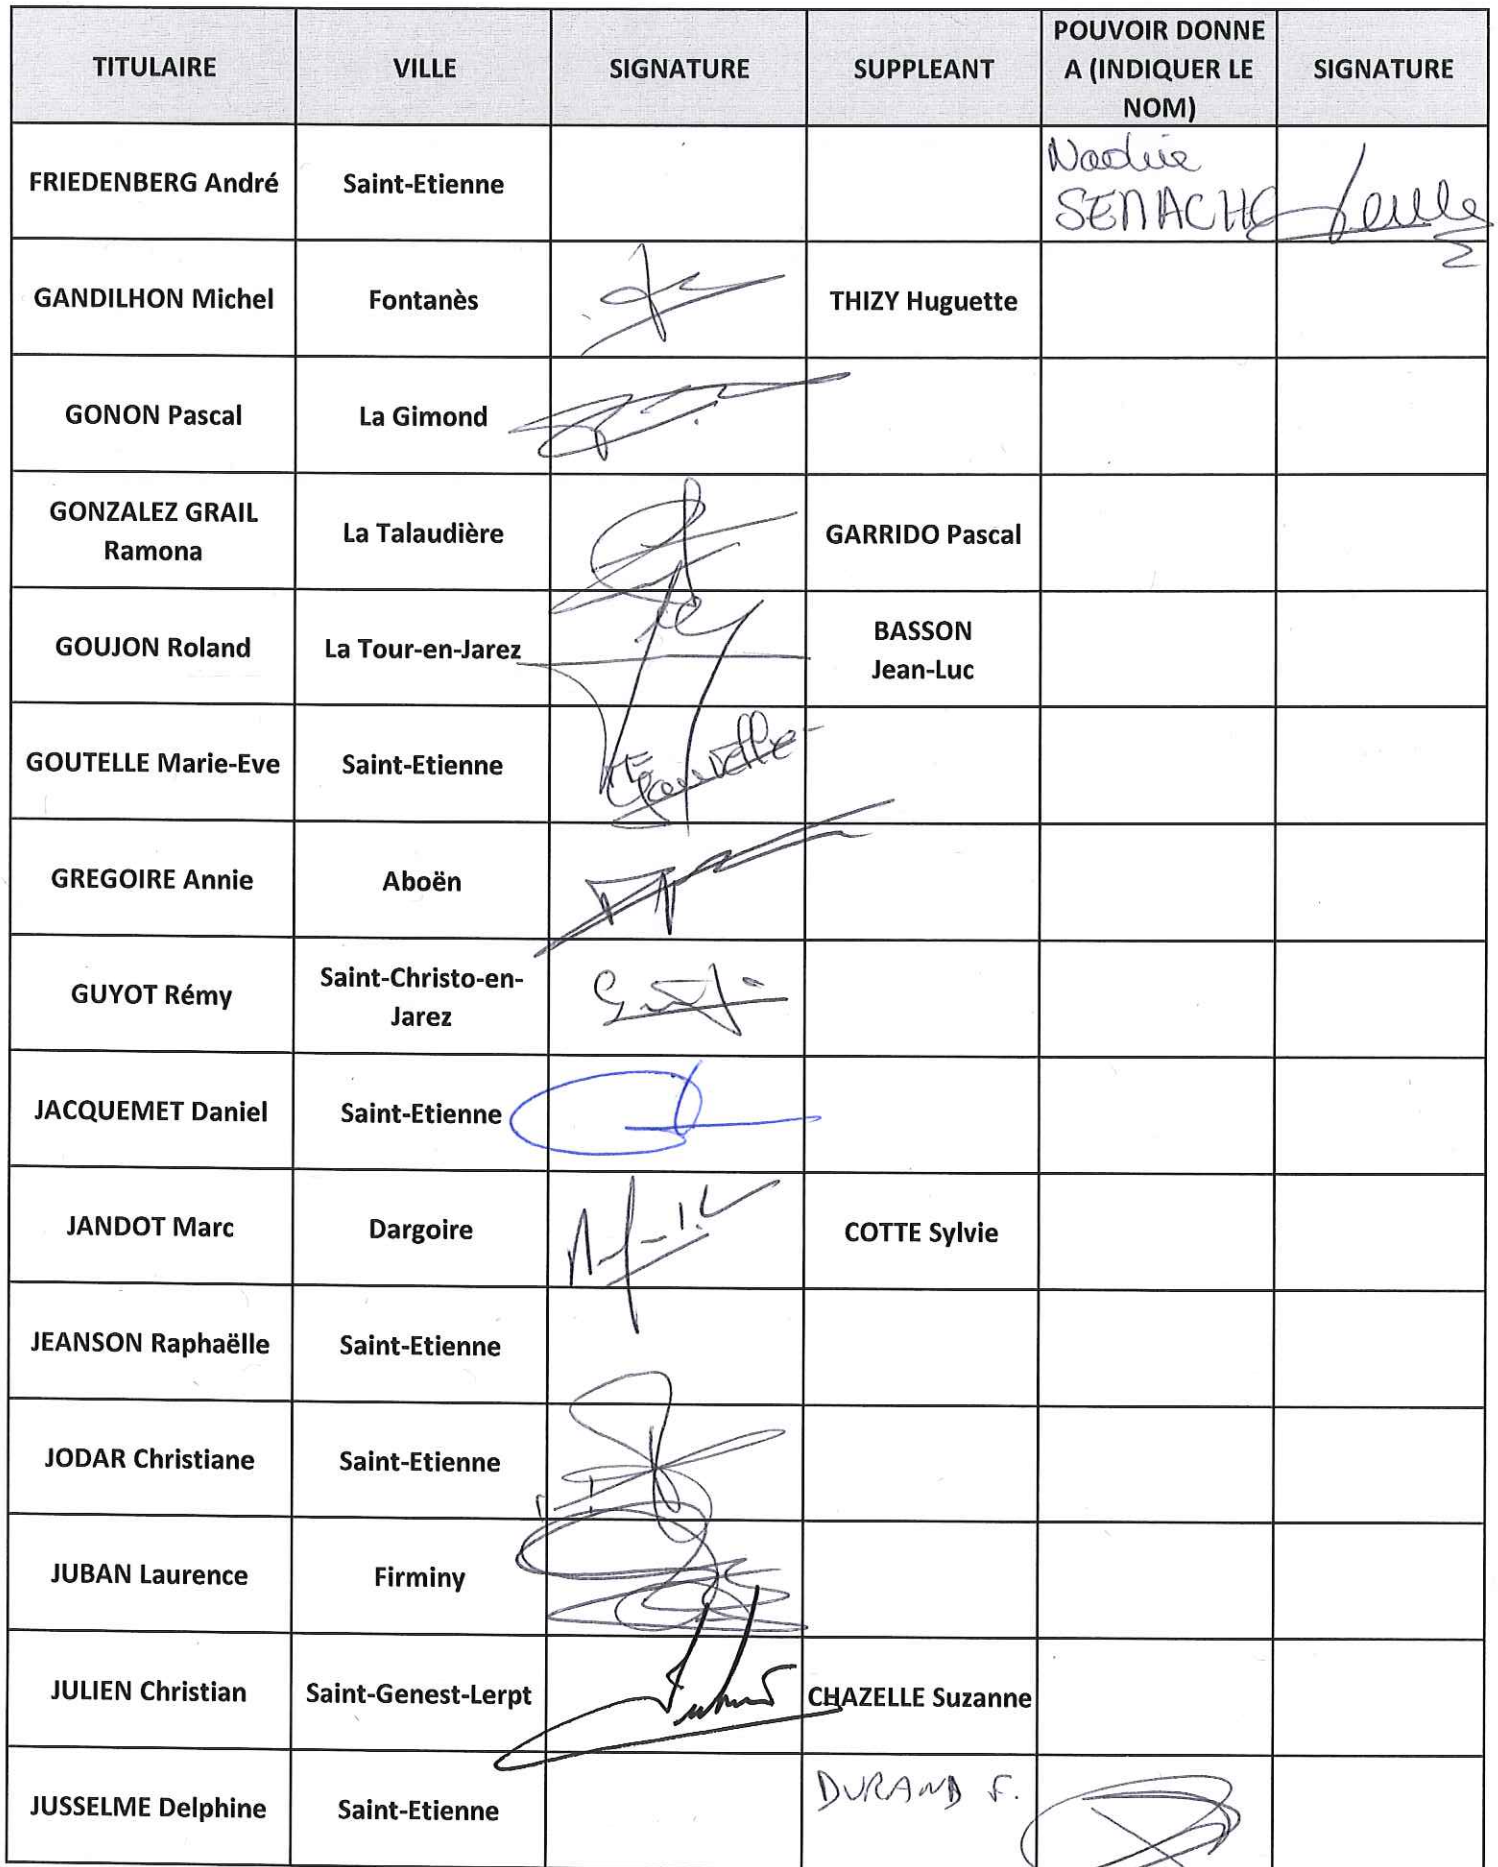 TITULAIRE VILLE SIGNATURE SUPPLEANT POUVOIR DONNE A (INDIQUER LE NOM) SIGNATURE
FRIEDENBERG André Saint-Etienne Nadia SENACHE
GANDILHON Michel Fontanès THIZY Huguette
GONON Pascal La Gimond
GONZALEZ GRAIL Ramona La Talaudière GARRIDO Pascal
GOUJON Roland La Tour-en-Jarez BASSON Jean-Luc
GOUTELLE Marie-Eve Saint-Etienne
GREGOIRE Annie Aboën
GUYOT Rémy Saint-Christo-en-Jarez
JACQUEMET Daniel Saint-Etienne
JANDOT Marc Dargoire COTTE Sylvie
JEANSON Raphaëlle Saint-Etienne
JODAR Christiane Saint-Etienne
JUBAN Laurence Firminy
JULIEN Christian Saint-Genest-Lerpt CHAZELLE Suzanne
JUSSELME Delphine Saint-Etienne DURAND F.